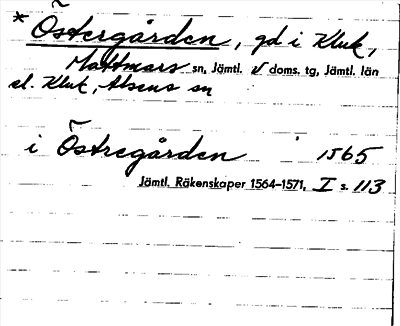 * Östergården, gd i Kluk,
Mattmars sn, Jämtl. v doms. tg, Jämtl. län
el. Kluk, Alsens sn
i Östregården 1565
Jämtl. Räkenskaper 1564–1571, I s. 113